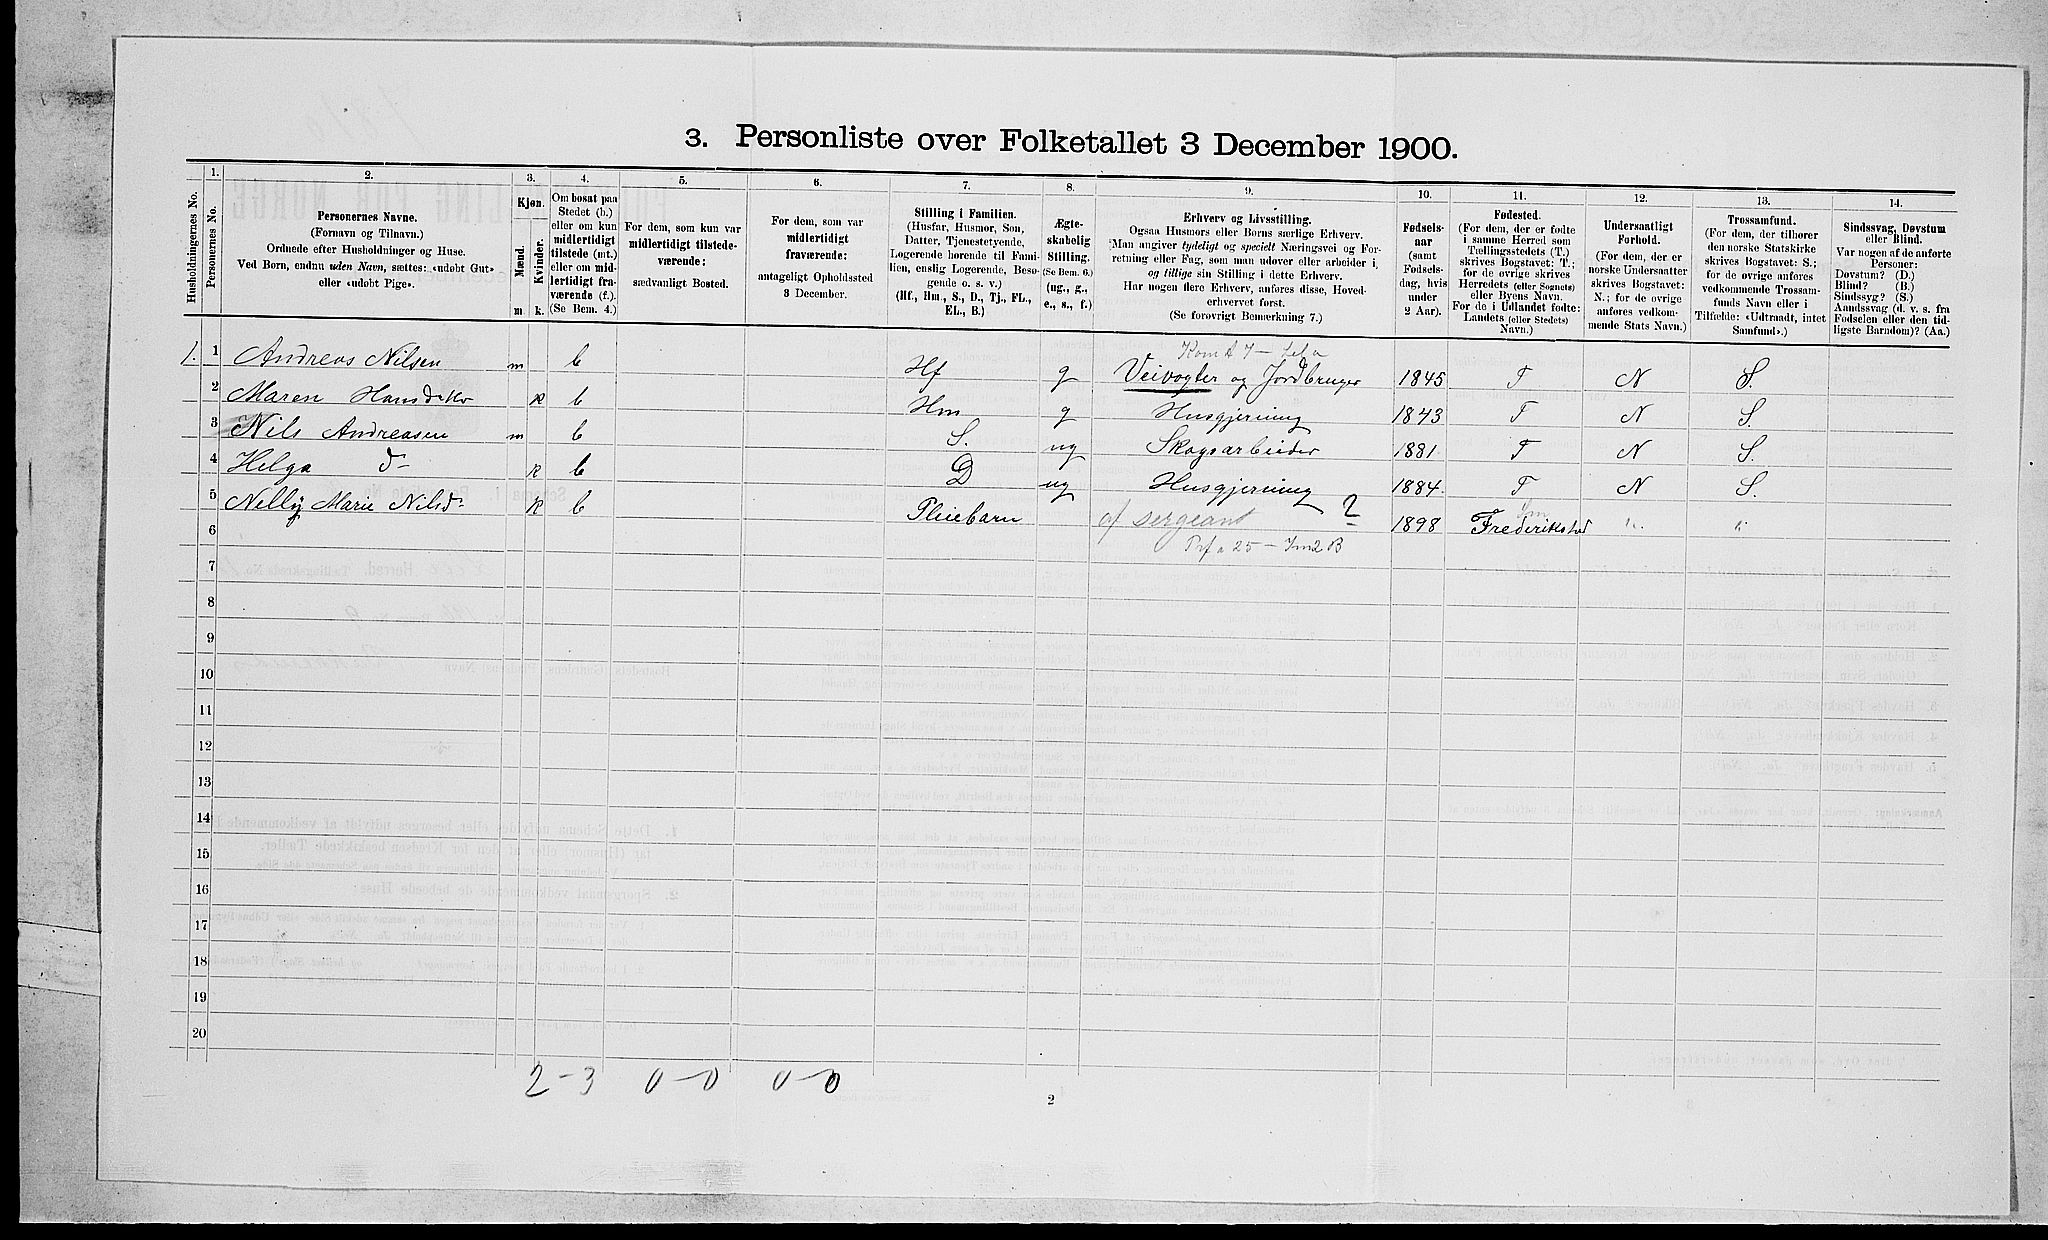 3. Personliste over Folketallet 3 December 1900.
Husholdningernes No.
1.
Personernes No.
2.
Personernes Navne.
(Fornavn og Tilnavn.)
Ordnede efter Husholdninger og Huse.
Ved Børn, endnu uden Navn, sættes: «udøbt Gut»
eller «udøbt Pige».
3.
Kjøn.
Mænd.
Kvinder.
m k.
4.
Om bosat paa
Stedet (b.)
eller om kun
midlertidigt
tilstede (mt.)
eller om mid-
lertidigt fra-
værende (f.).
(Se Bem. 4.)
5.
For dem, som kun var
midlertidigt tilstede-
værende:
sædvanligt Bosted.
6.
For dem, som var
midlertidigt
fraværende:
antageligt Opholdssted
3 December.
7.
Stilling i Familien.
(Husfar, Husmor, Søn,
Datter, Tjenestetyende,
Logerende hørende til Fami-
lien, enslig Logerende, Besø-
gende o. s. v.)
(Hf., Hm., S., D., Tj., FL.,
EL., B.)
8.
Ægte-
skabelig
Stilling.
(Se Bem. 6.)
(ug., g.,
e., s., f.)
9.
Erhverv og Livsstilling.
Ogsaa Husmors eller Børns særlige Erhverv.
Man angiver tydeligt og specielt Næringsvei og For-
retning eller Fag, som man udøver eller arbeider i,
og tillige sin Stilling i dette Erhverv.
Har nogen flere Erhverv, anføres disse, Hoved-
erhvervet først.
(Se forøvrigt Bemærkning 7.)
10.
Fødsels-
aar
(samt
Fødsels-
dag, hvis
under
2 Aar).
11.
Fødested.
(For dem, der er fødte
i samme Herred som
Tællingsstedets (T.)
skrives Bogstavet: T.;
for de øvrige skrives
Herredets (eller Sognets)
eller Byens Navn.
For de i Udlandet fødte:
Landets (eller Stedets)
Navn.)
12.
Undersaatligt
Forhold.
(For dem, der er
norske Undersaatter
skrives Bogstavet:
N.; for de øvrige
anføres vedkom-
mende Stats Navn.)
13.
Trossamfund.
(For dem, der tilhører
den norske Statskirke
skrives Bogstavet: S.;
for de øvrige anføres
vedkommende Trossam-
funds Navn eller i
Tilfælde: «Udtraadt, intet
Samfund».)
14.
Sindssvag, Døvstum
eller Blind.
Var nogen af de anførte
Personer:
Døvstum? (D.)
Blind? (B.)
Sindssyg? (S.)
Aandssvag (d. v. s. fra
Fødselen eller den tid-
ligste Barndom)? (Aa.)
1. 1 Andreas Nilsen m b Hf g Veivogter og Jordbruger 1845 T N S.
2 Maren Hansdtr k b Hm g Husgjerning 1843 T N S.
3 Nils Andreasen m b S. ug Skogsarbeider 1881 T N S.
4 Helga d- k b D ug Husgjerning 1884 T N S.
5 Nelly Marie Nilsd- k b Pleiebarn af sergeant ? 1898 Frederikstad " "
6
7
8
9
10
11
12
13
14
15
16
17
18
19
20
2-3 0-0 0-0
2